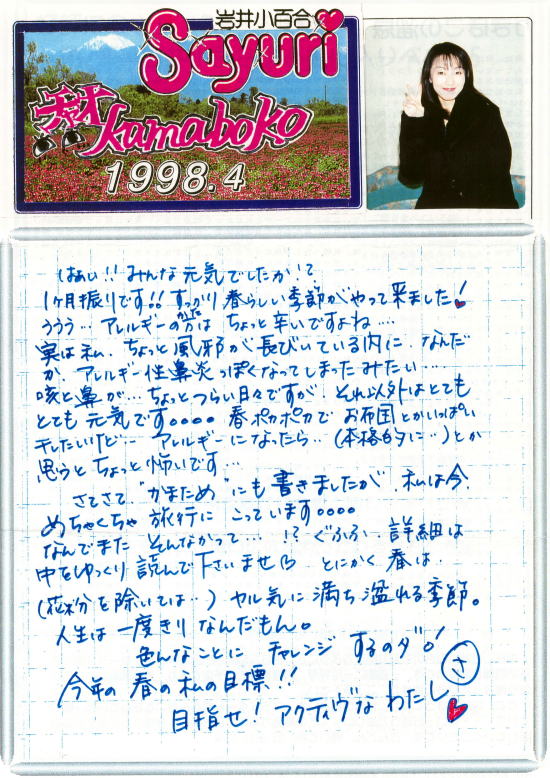 岩井小百合
Sayuri
kamaboko
1998.4
はぁい!!みんな元気でしたか!?
1ヶ月振りです!!すっかり春らしい季節がやって来ました!
ううう…アレルギーの方はちょっと辛いですよね…
かた
実は私、ちょっと風邪が長びいている内に、なんだ
か、アレルギー性鼻炎っぽくなってしまったみたい…
咳と鼻が…ちょっとつらい日々ですが、それ以外はとても
とても元気です。。。。春ポカポカで お布団とかいっぱい
干したいけど…アレルギーになったら…(本格的に…)とか
思うとちょっと怖いです…
さてさて、"かまため"にも書きましたが、私は今、
めちゃくちゃ旅行にこっています。。。。
なんでまた そんなかって…!?ぐふふ、詳細は
中をゆっくり読んで下さいませ とにかく春は、
(花粉を除いては…)ヤル気に満ち溢れる季節。
人生は一度きりなんだもん。
色んなことに チャレンジ するのダ!
今年の春の私の目標!!
目指せ!アクティヴなわたし
さ